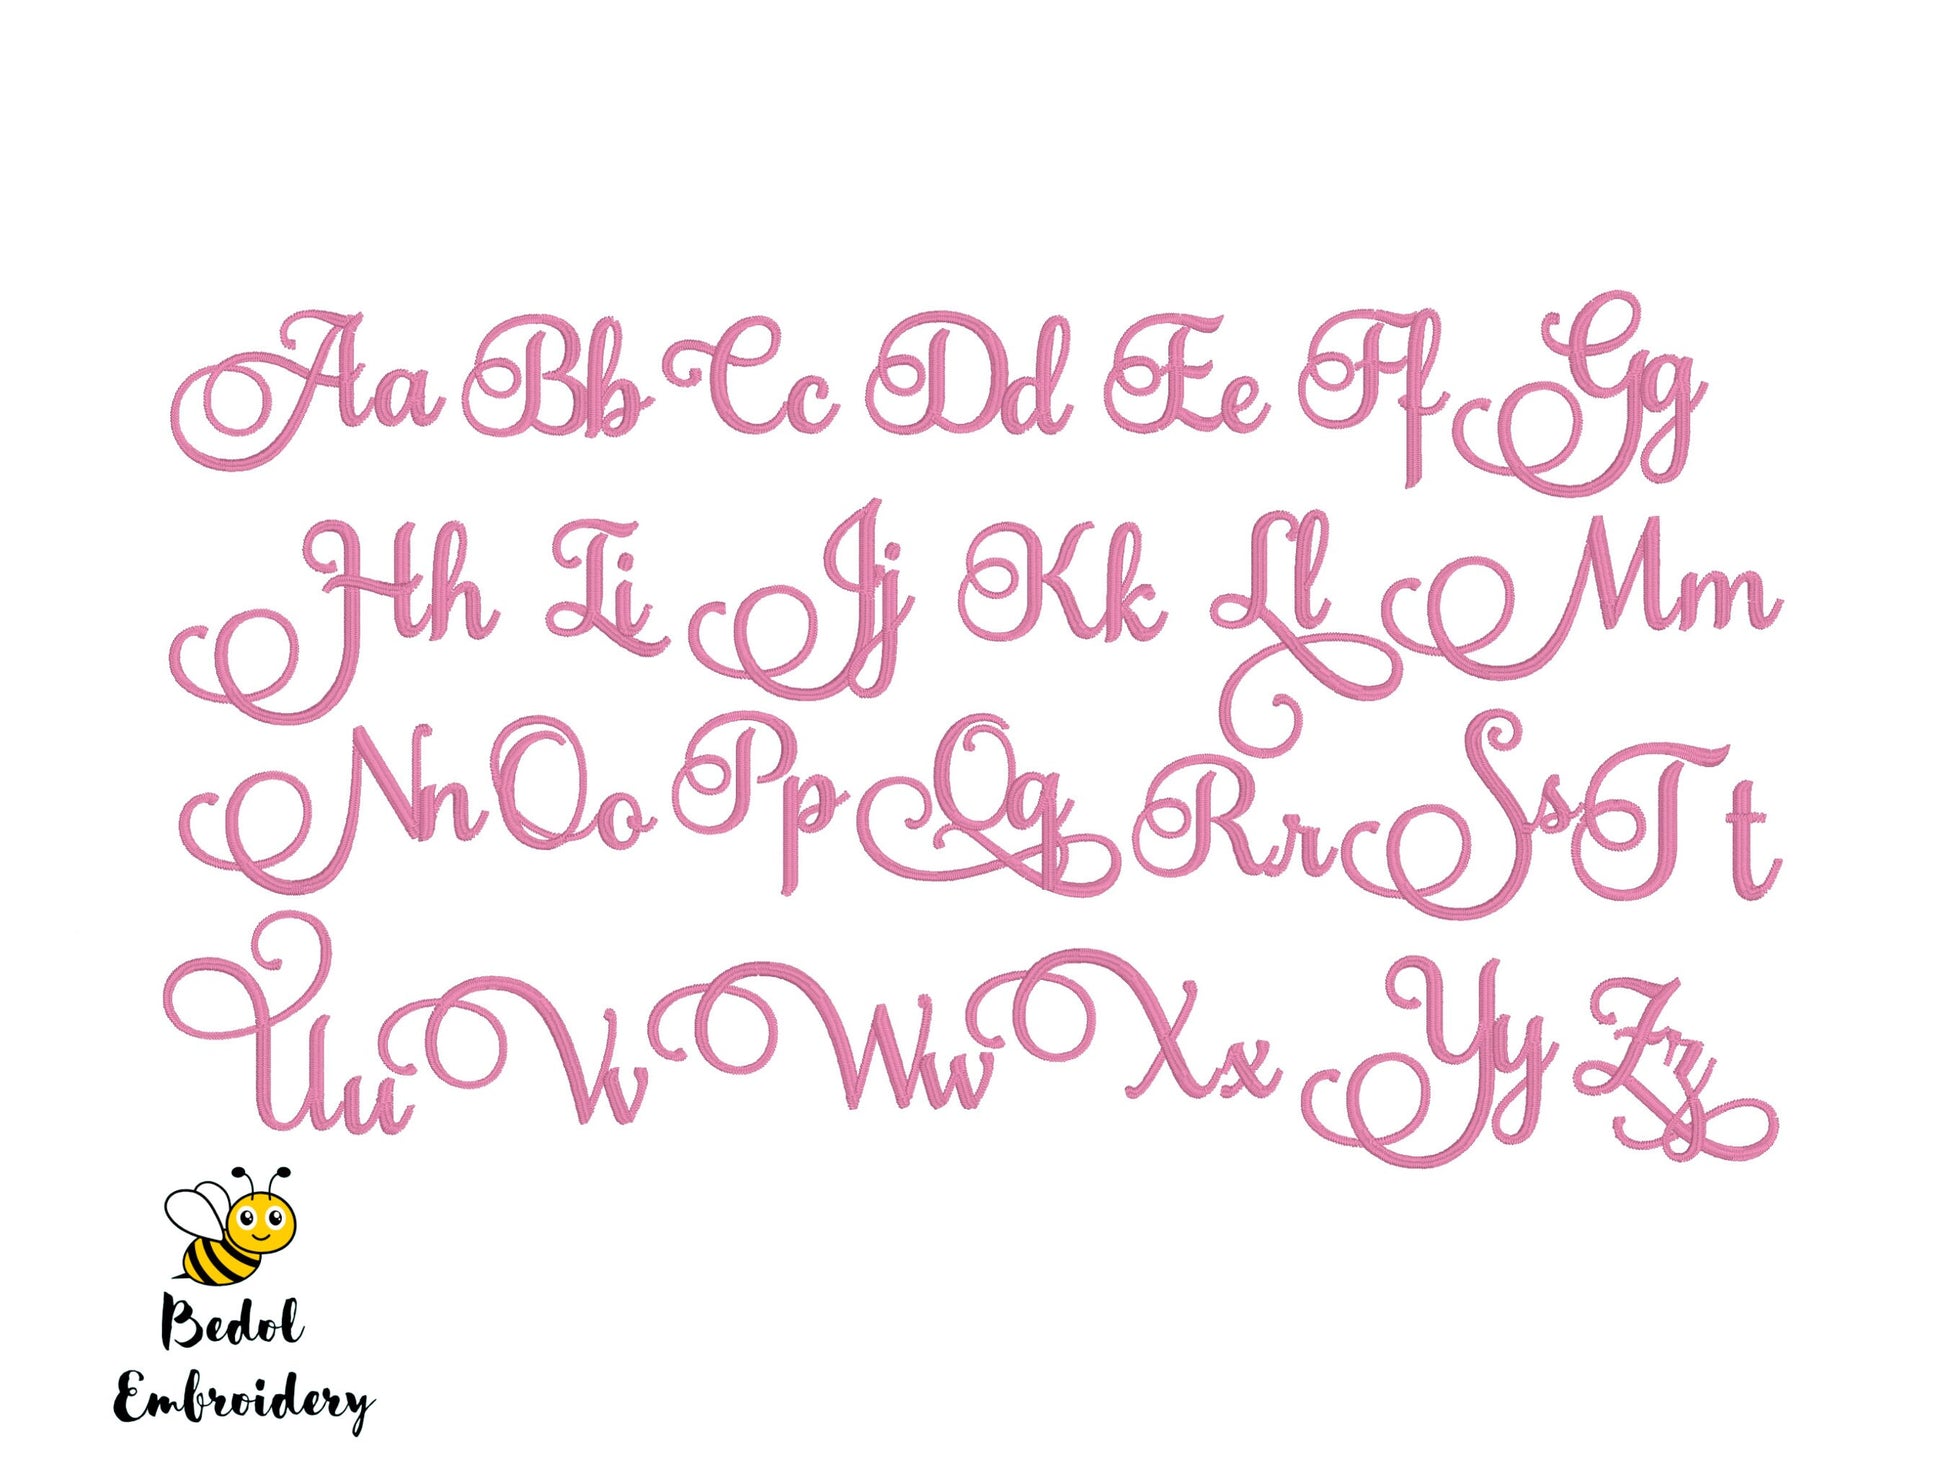 Aa Bb Cc Dd Ee Ff Gg
Hh Ii Jj Kk Ll Mm
Nn Oo Pp Qq Rr Ss Tt
Uu Vv Ww Xx Yy Zz
Bedol
Embroidery